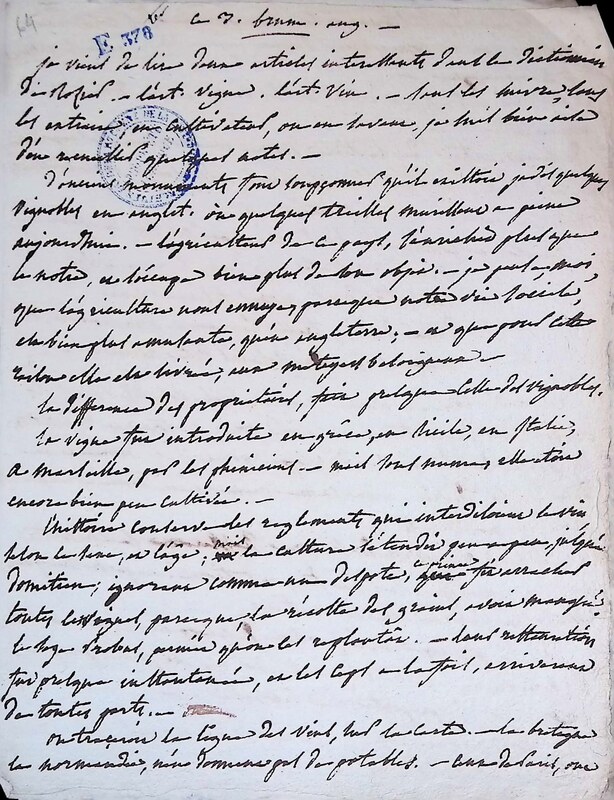 64
E 378
ce 3. brum. aug. —
je viens de lire deux articles intéressants dans le dictionnaire
de Rozier. — l'art. vigne. l'art. vin. — sans les suivre, sans
les entendre en cultivateur, ou en savant, je suis bien aise
d'en recueillir quelques notes. —
D'anciens monuments font soupçonner qu'il existoit jadis quelques
vignobles en anglet. où quelques treilles murissent a peine
aujourd'hui. — l'agriculture de ce pays, l'enrichit plus que
le notre, et s'occupe bien plus de son objet. — je pense, moi
que l'agriculture nous ennuye, parceque notre vie sociale,
est bien plus amusante, qu'en angleterre; — et que pour cette
raison elle est livrée, aux métayers besoigneux. —
la différence des propriétaires, fait presque celle des vignobles.
la vigne fut introduite en grèce, en Sicile, en Italie,
a marseille, par les phéniciens. — mais sous numa, elle étoit
encore bien peu cultivée. —
l'histoire conserve des reglements qui interdisoient le vin
selon le sexe, et l'âge; mais la culture s'étendit peu a peu, jusqu'à
domitien; ignorant comme un despote, fit arracher
toutes les vignes, parceque la récolte des grains, avoit manqué.
le sage Probus, permit qu'on les replantât. — leur restauration
fut presque instantanée, et les ceps a la fois, arriverent
de toutes parts. —
on traceroit la ligne des vins, sur la carte. — la bretagne
la normandie, n'en donnent pas de potables. — ceux de Paris, ont